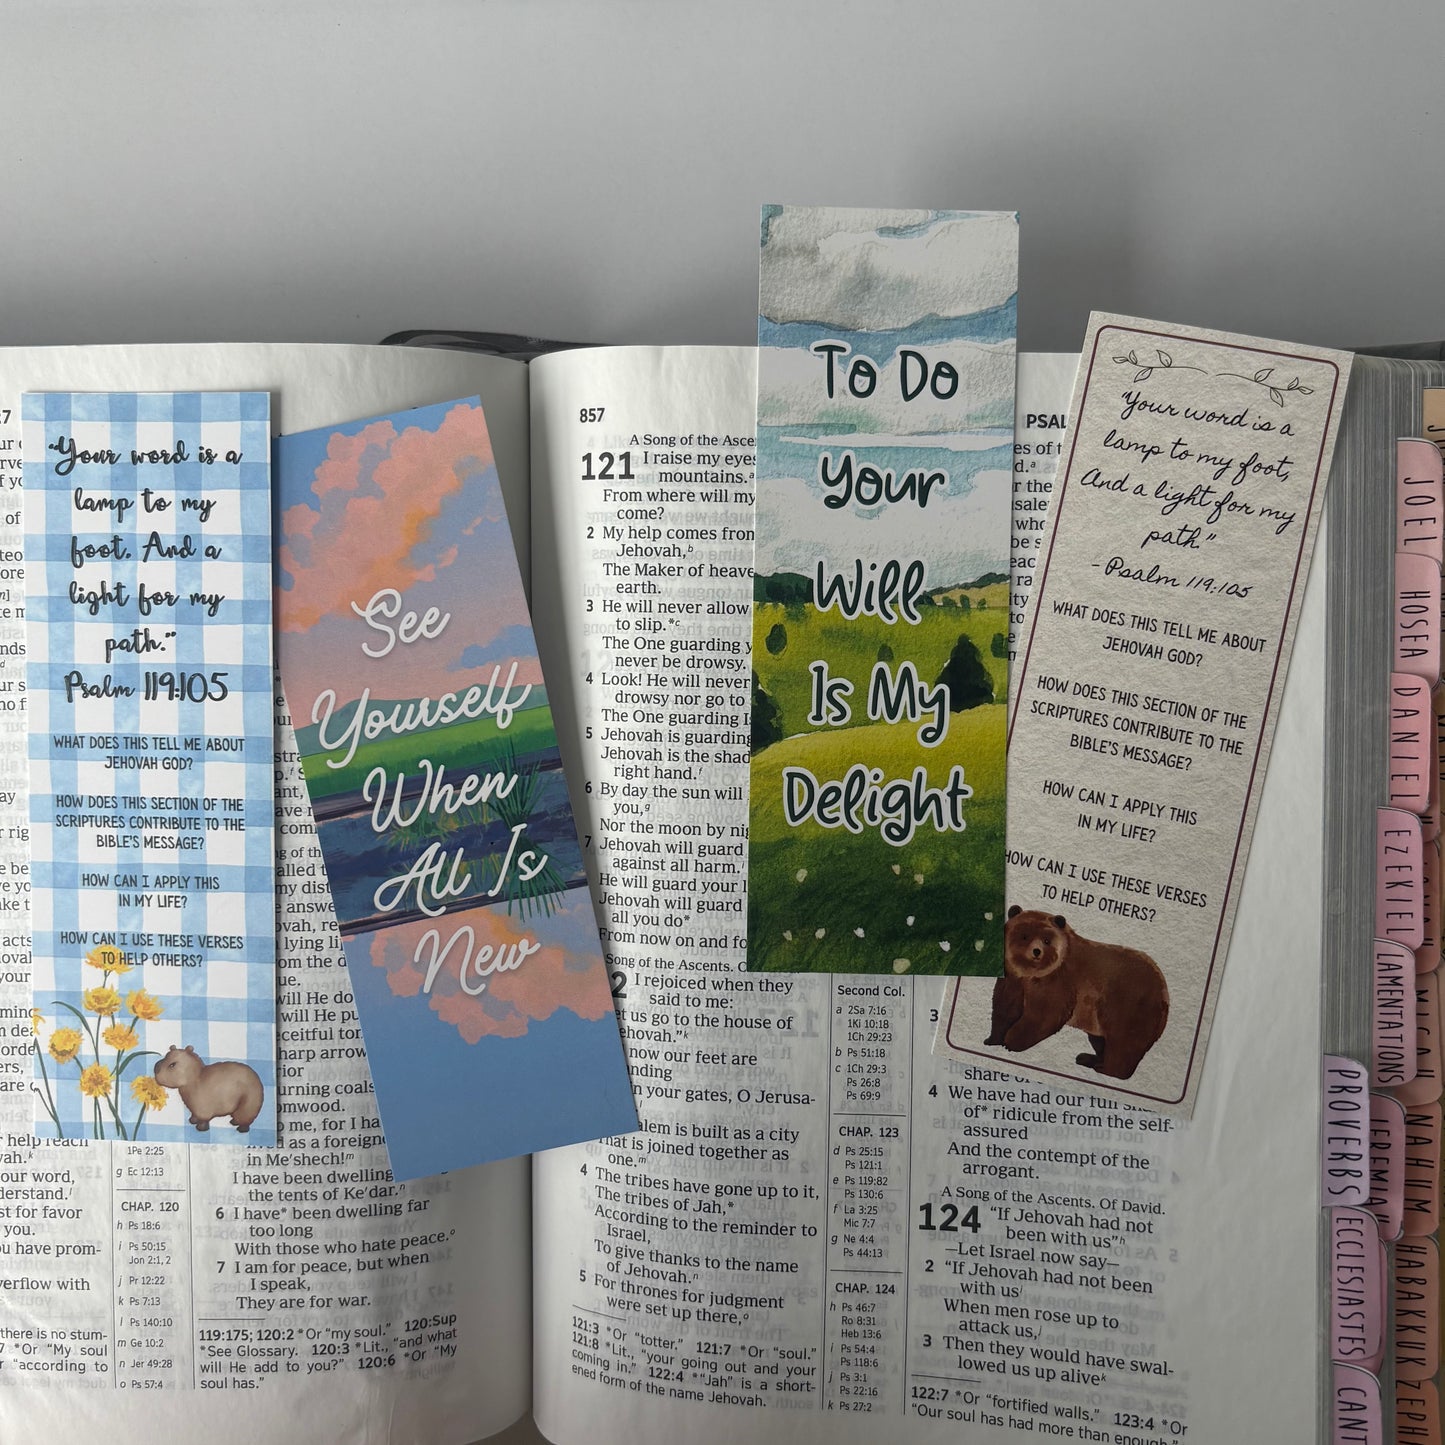 "Your word is a
lamp to my
foot, And a
light for my
path."
Psalm 119:105
WHAT DOES THIS TELL ME ABOUT
JEHOVAH GOD?
HOW DOES THIS SECTION OF THE
SCRIPTURES CONTRIBUTE TO THE
BIBLE'S MESSAGE?
HOW CAN I APPLY THIS
IN MY LIFE?
HOW CAN I USE THESE VERSES
TO HELP OTHERS?
See
Yourself
When
All Is
New
To Do
Your
Will
Is My
Delight
"Your word is a
lamp to my foot,
And a light for my
path."
-Psalm 119:105
WHAT DOES THIS TELL ME ABOUT
JEHOVAH GOD?
HOW DOES THIS SECTION OF THE
SCRIPTURES CONTRIBUTE TO THE
BIBLE'S MESSAGE?
HOW CAN I APPLY THIS
IN MY LIFE?
HOW CAN I USE THESE VERSES
TO HELP OTHERS?
1Pe 2:25
g Ec 12:13
CHAP. 120
h Ps 18:6
i Ps 50:15
Jon 2:1, 2
j Pr 12:22
k Ps 7:13
l Ps 140:10
m Ge 10:2
n Jer 49:28
o Ps 57:4
in Me'shech!m
I have been dwelling
the tents of Ke'dar.n
6 I have* been dwelling far
too long
With those who hate peace.o
7 I am for peace, but when
I speak,
They are for war.
119:175; 120:2 *Or "my soul." 120:Sup
*See Glossary. 120:3 *Lit., "and what
will He add to you?" 120:6 *Or "My
soul has."
857
A Song of the Ascen
121 I raise my eyes
mountains.a
From where will my
come?
2 My help comes from
Jehovah,b
The Maker of heave
earth.
3 He will never allow
to slip.*c
The One guarding y
never be drowsy.
4 Look! He will never
drowsy nor go to
The One guarding I
5 Jehovah is guarding
Jehovah is the shad
right hand.f
6 By day the sun will
you,g
Nor the moon by nig
7 Jehovah will guard
against all harm.i
He will guard your l
Jehovah will guard
all you do*
From now on and fo
Song of the Ascents. O
2 I rejoiced when they
said to me:
et us go to the house of
ehovah."k
now our feet are
nding
in your gates, O Jerusa-
alem is built as a city
hat is joined together as
one.m
4 The tribes have gone up to it,
The tribes of Jah,*
According to the reminder to
Israel,
To give thanks to the name
of Jehovah.n
5 For thrones for judgment
were set up there,o
121:3 *Or "totter." 121:7 *Or "soul."
121:8 *Lit., "your going out and your
coming in." 122:4 *"Jah" is a short-
ened form of the name Jehovah.
Second Col.
a 2Sa 7:16
1Ki 10:18
1Ch 29:23
b Ps 51:18
c 1Ch 29:3
Ps 26:8
Ps 69:9
CHAP. 123
d Ps 25:15
Ps 121:1
e Ps 119:82
Ps 130:6
f La 3:25
Mic 7:7
g Ne 4:4
Ps 44:13
CHAP. 124
h Ps 46:7
Ro 8:31
Heb 13:6
i Ps 54:4
Ps 118:6
j Ps 3:1
Ps 22:16
k Ps 27:2
PSAL
4 We have had our full
of* ridicule from the self-
assured
And the contempt of the
arrogant.
A Song of the Ascents. Of David.
124 "If Jehovah had not
been with us"h
—Let Israel now say—
2 "If Jehovah had not been
with usi
When men rose up to
attack us,j
3 Then they would have swal-
lowed us up alivek
122:7 *Or "fortified walls." 123:4 *Or
"Our soul has had more than enough
JOEL
HOSEA
DANIEL
EZEKIEL
LAMENTATIONS
JEREMIAH
PROVERBS
ECCLESIASTES
CANT
MICAH
NAHUM
HABAKKUK
ZEPH